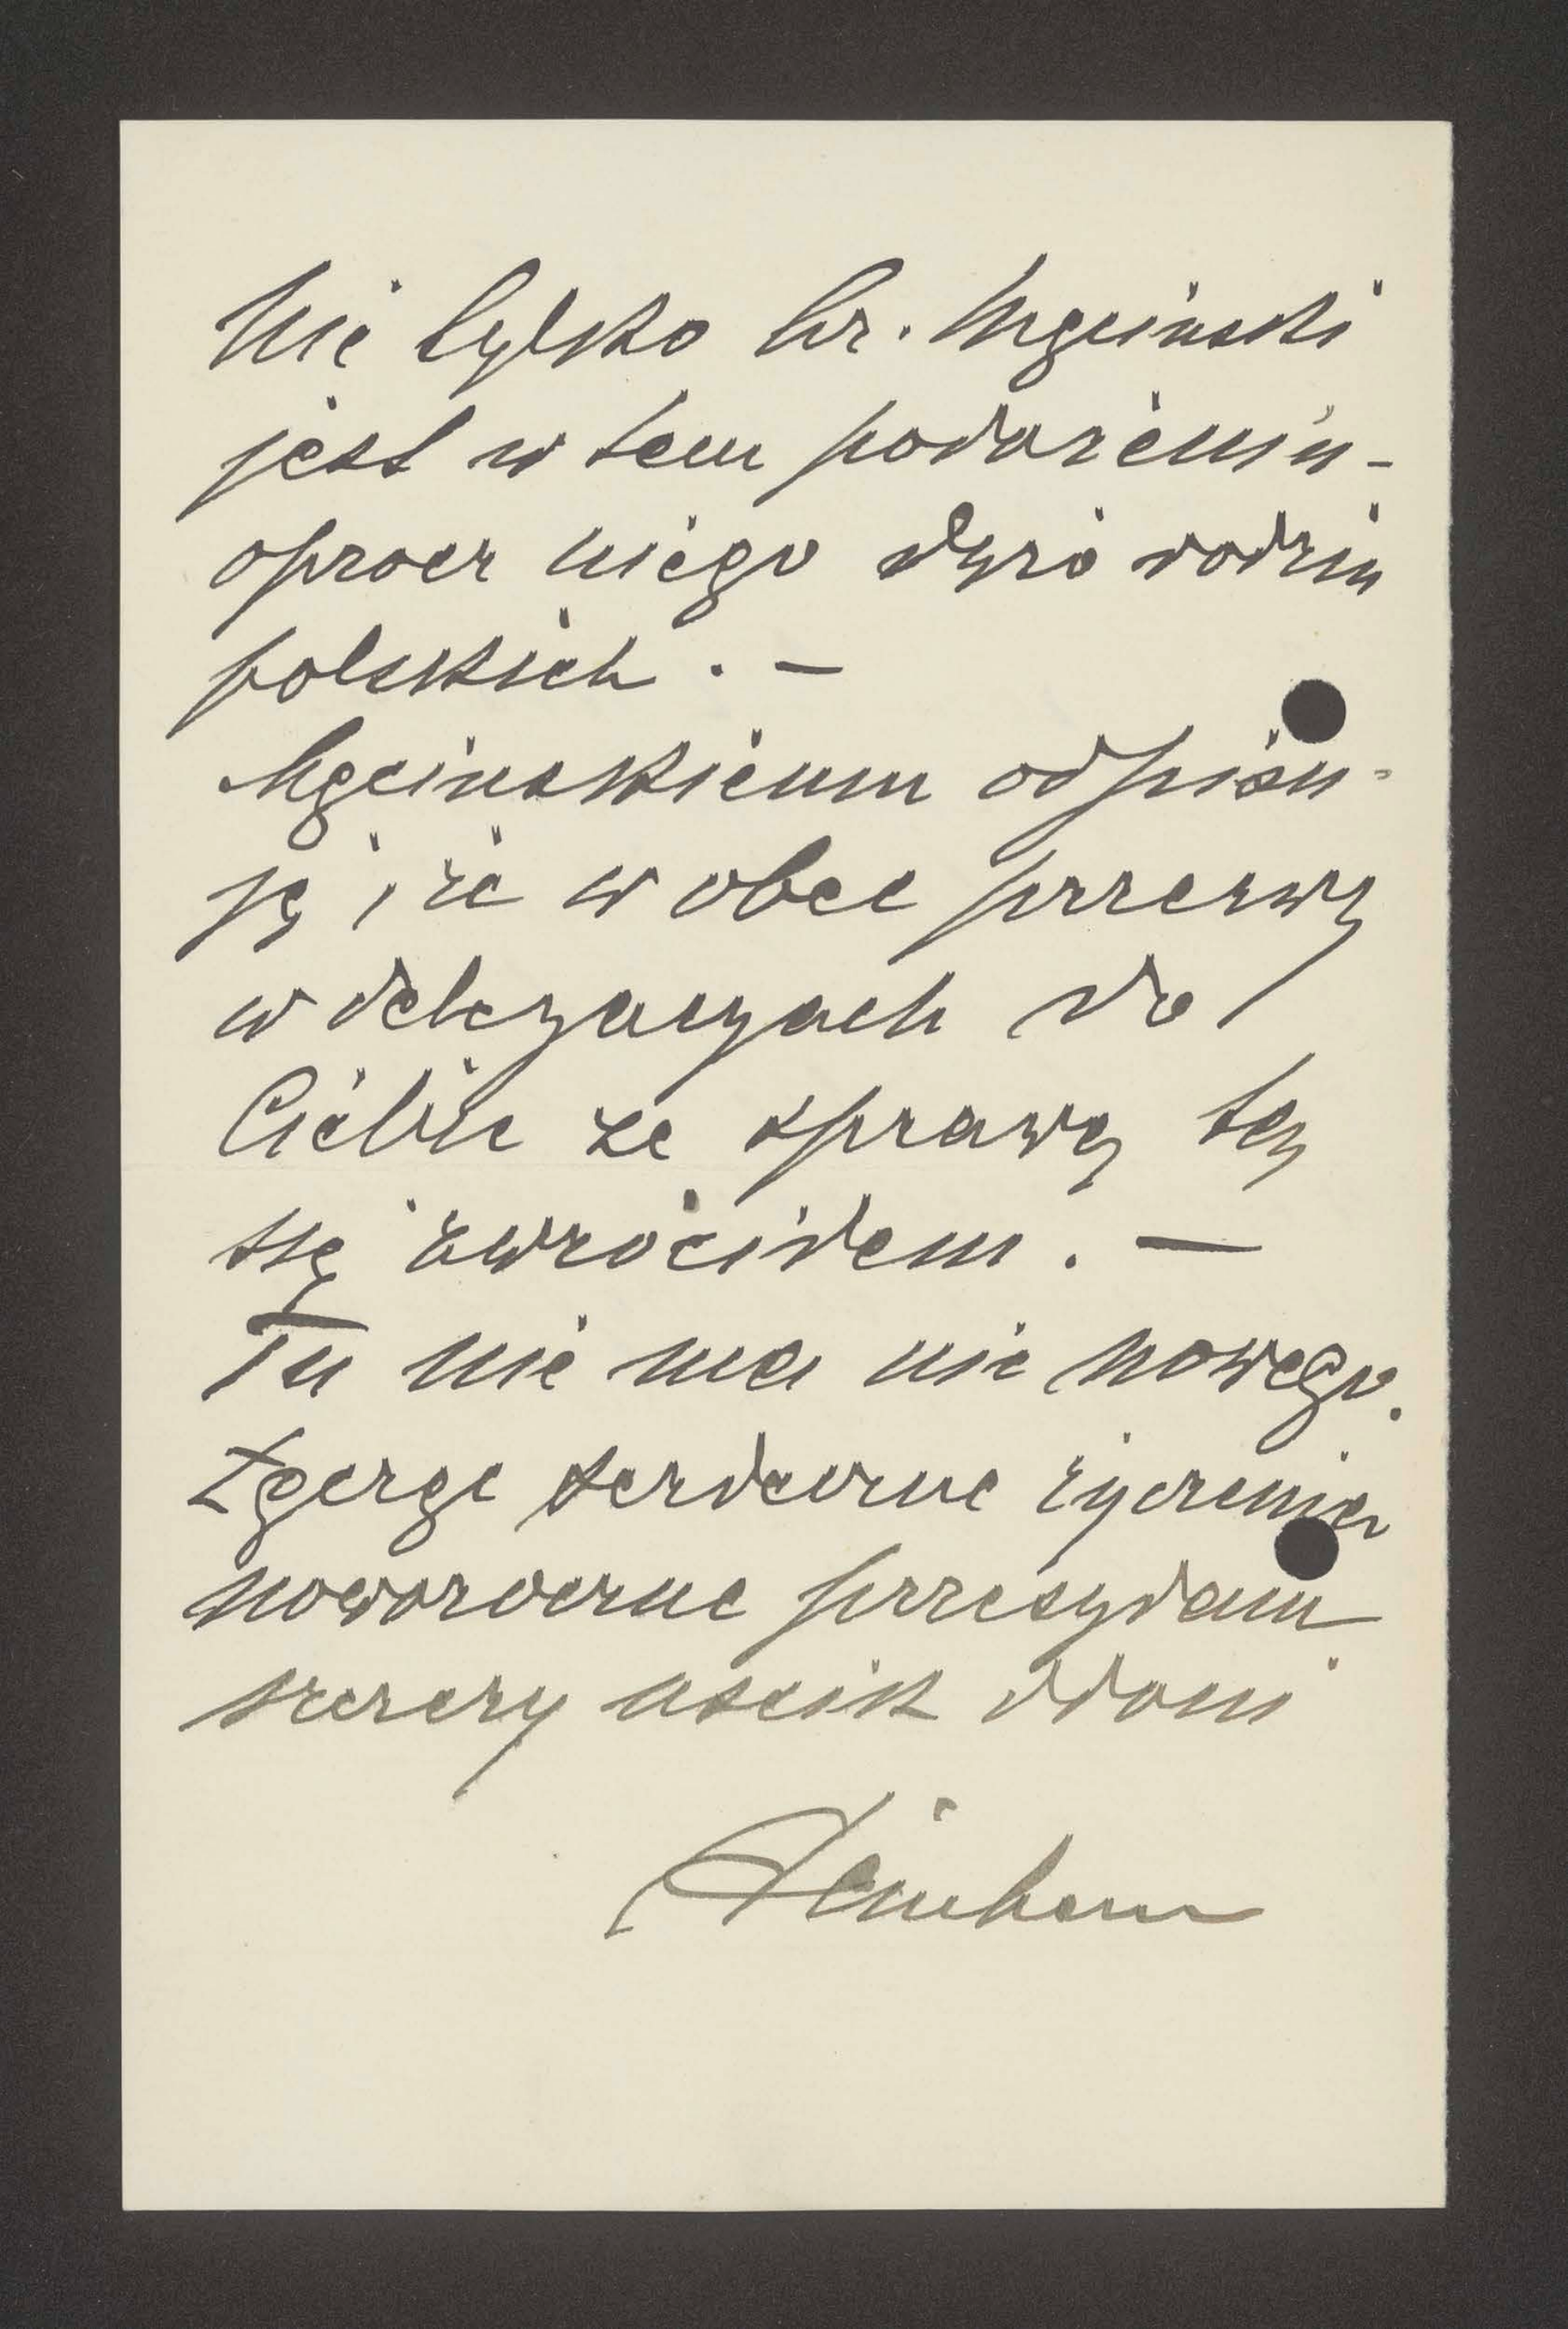 Nie tylko hr. Męciński
jest w tem położeniu -
oprócz niego dużo rodzin
polskich. —
Męcińskiemu odpisu-
ję, że w obec przerwy
w delegacyach do
Ciebie ze sprawą tą
się zwróciłem. —
Tu nie ma nic nowego.
Łącząc serdeczne życzenia
noworoczne przesyłam
szczery uścisk dłoni